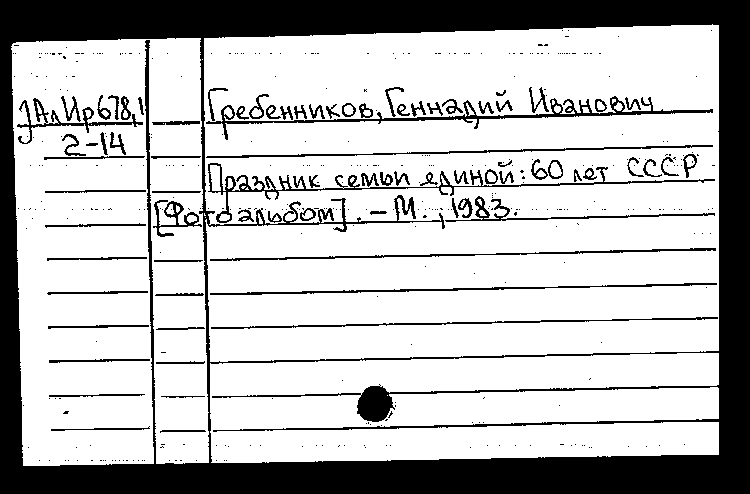 АлИр678,1
2-14
Гребенников, Геннадий Иванович
Праздник семьи единой: 60 лет СССР
[Фотоальбом]. – М., 1983.